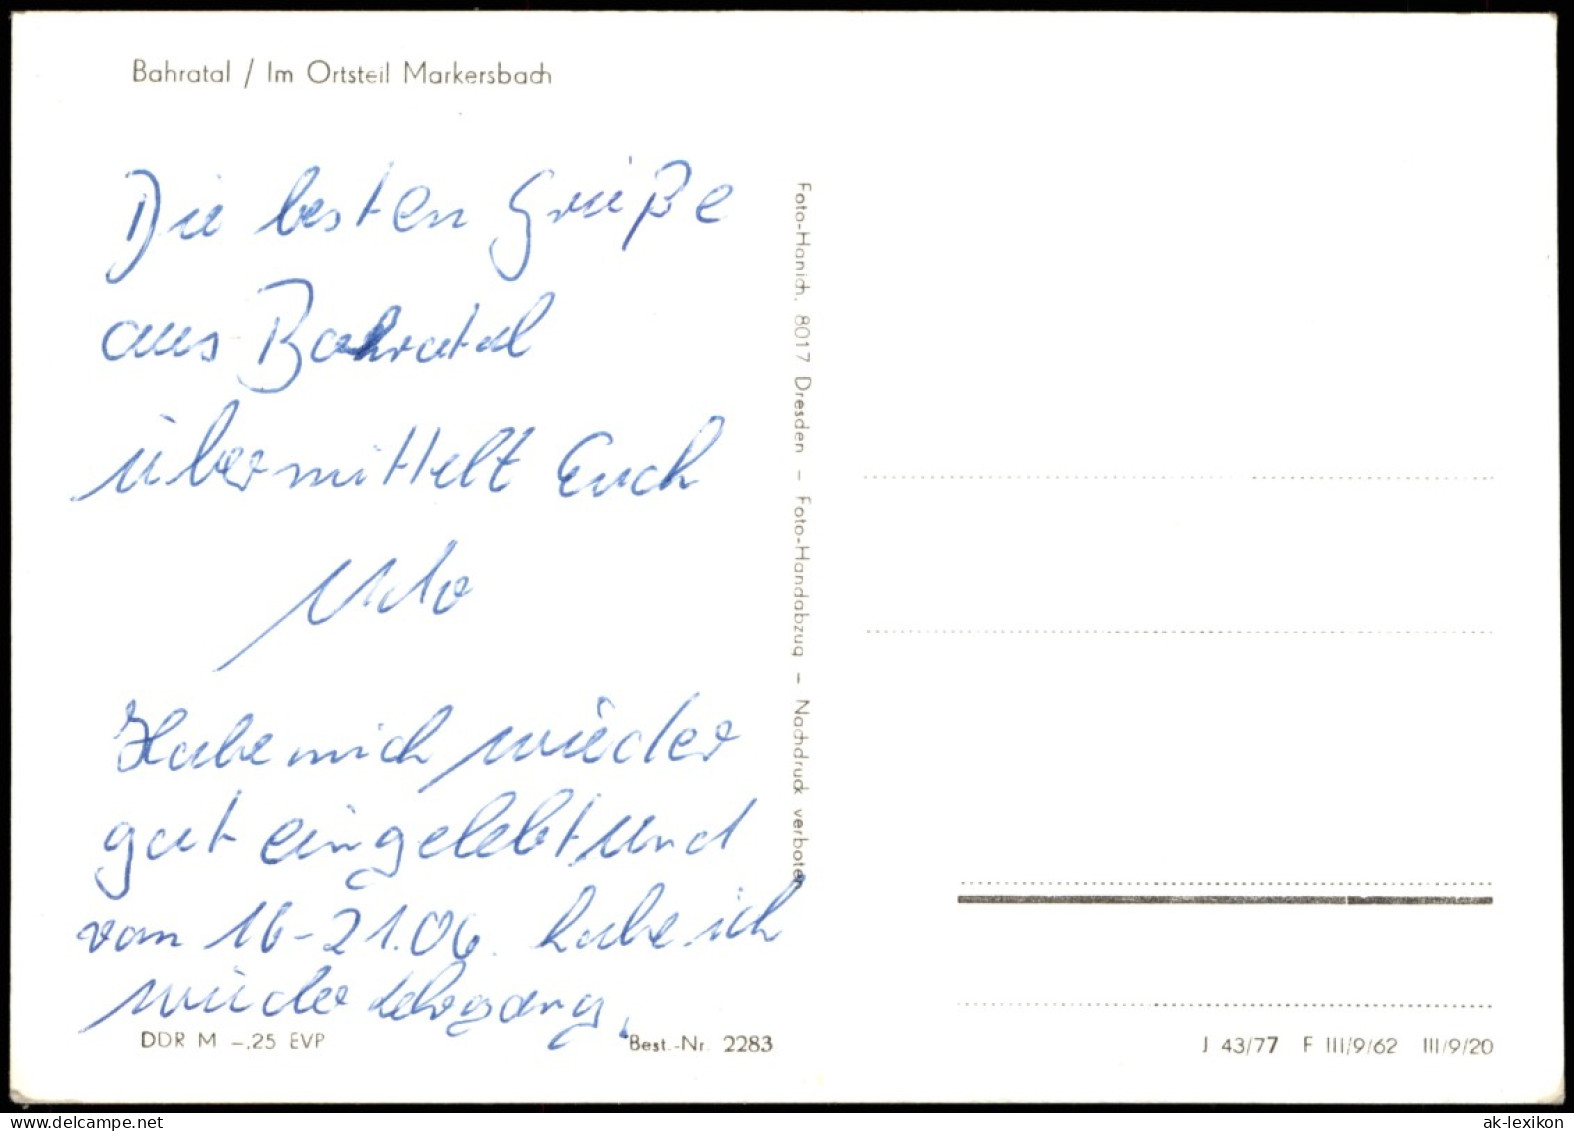 Bahratal / Im Ortsteil Markersbach
Die besten Grüße
aus Bahratal
übermittelt Euch
Udo
Habe mich wieder
gut eingelebt und
vom 16-21.06. habe ich
wieder Lehrgang.
DDR M -.25 EVP
Best.-Nr. 2283
Foto-Hanich, 8017 Dresden – Foto-Handabzug – Nachdruck verboten
J 43/77 F III/9/62 III/9/20
ak-lexikon.com